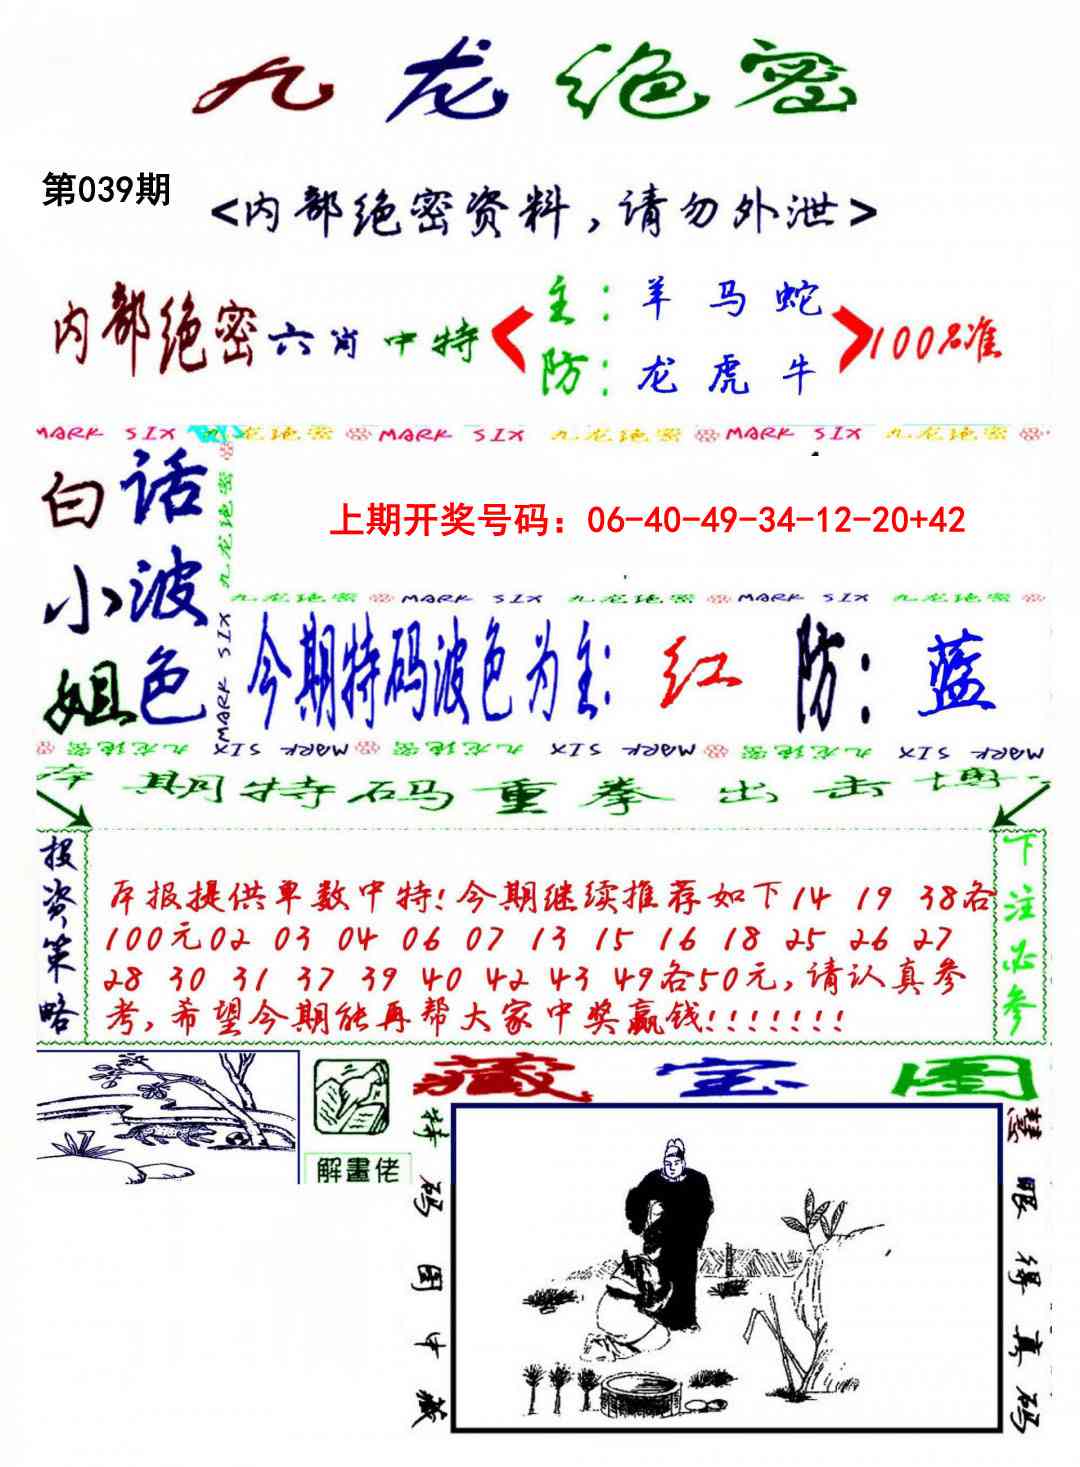 九龙绝密
第039期
<内部绝密资料,请勿外泄>
内部绝密六肖中特
主:羊马蛇
防:龙虎牛
100%准
MARK SIX 九龙绝密 MARK SIX 九龙绝密 MARK SIX 九龙绝密
白小姐
话波色
九龙绝密
MARK SIX
上期开奖号码：06-40-49-34-12-20+42
九龙绝密 MARK SIX 九龙绝密 MARK SIX 九龙绝密
今期特码波色为主:红 防:蓝
九龙绝密 MARK SIX 九龙绝密 MARK SIX 九龙绝密 MARK SIX
本期特码重拳出击博
投资策略
本报提供单数中特!今期继续推荐如下14 19 38各
100元02 03 04 06 07 13 15 16 18 25 26 27
28 30 31 37 39 40 42 43 49各50元,请认真参
考,希望今期能再帮大家中奖赢钱!!!!!!!
下注必参
解畫佬
藏宝图
特码图中藏
慧眼得真码